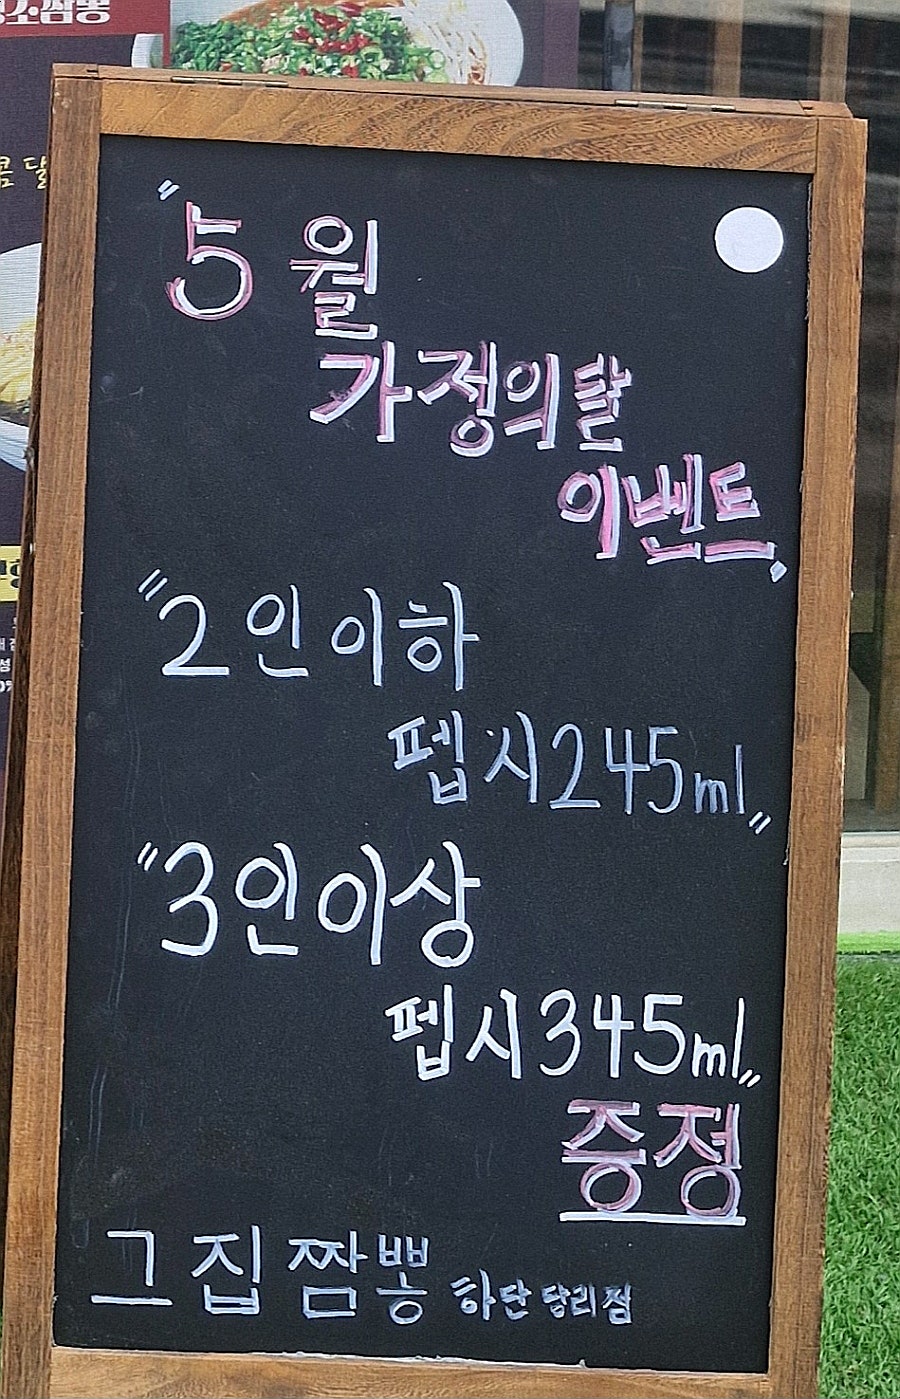 "5월
가정의달
이벤트"
"2인이하
펩시245ml"
"3인이상
펩시345ml"
증정
그집짬뽕 하단 당리점